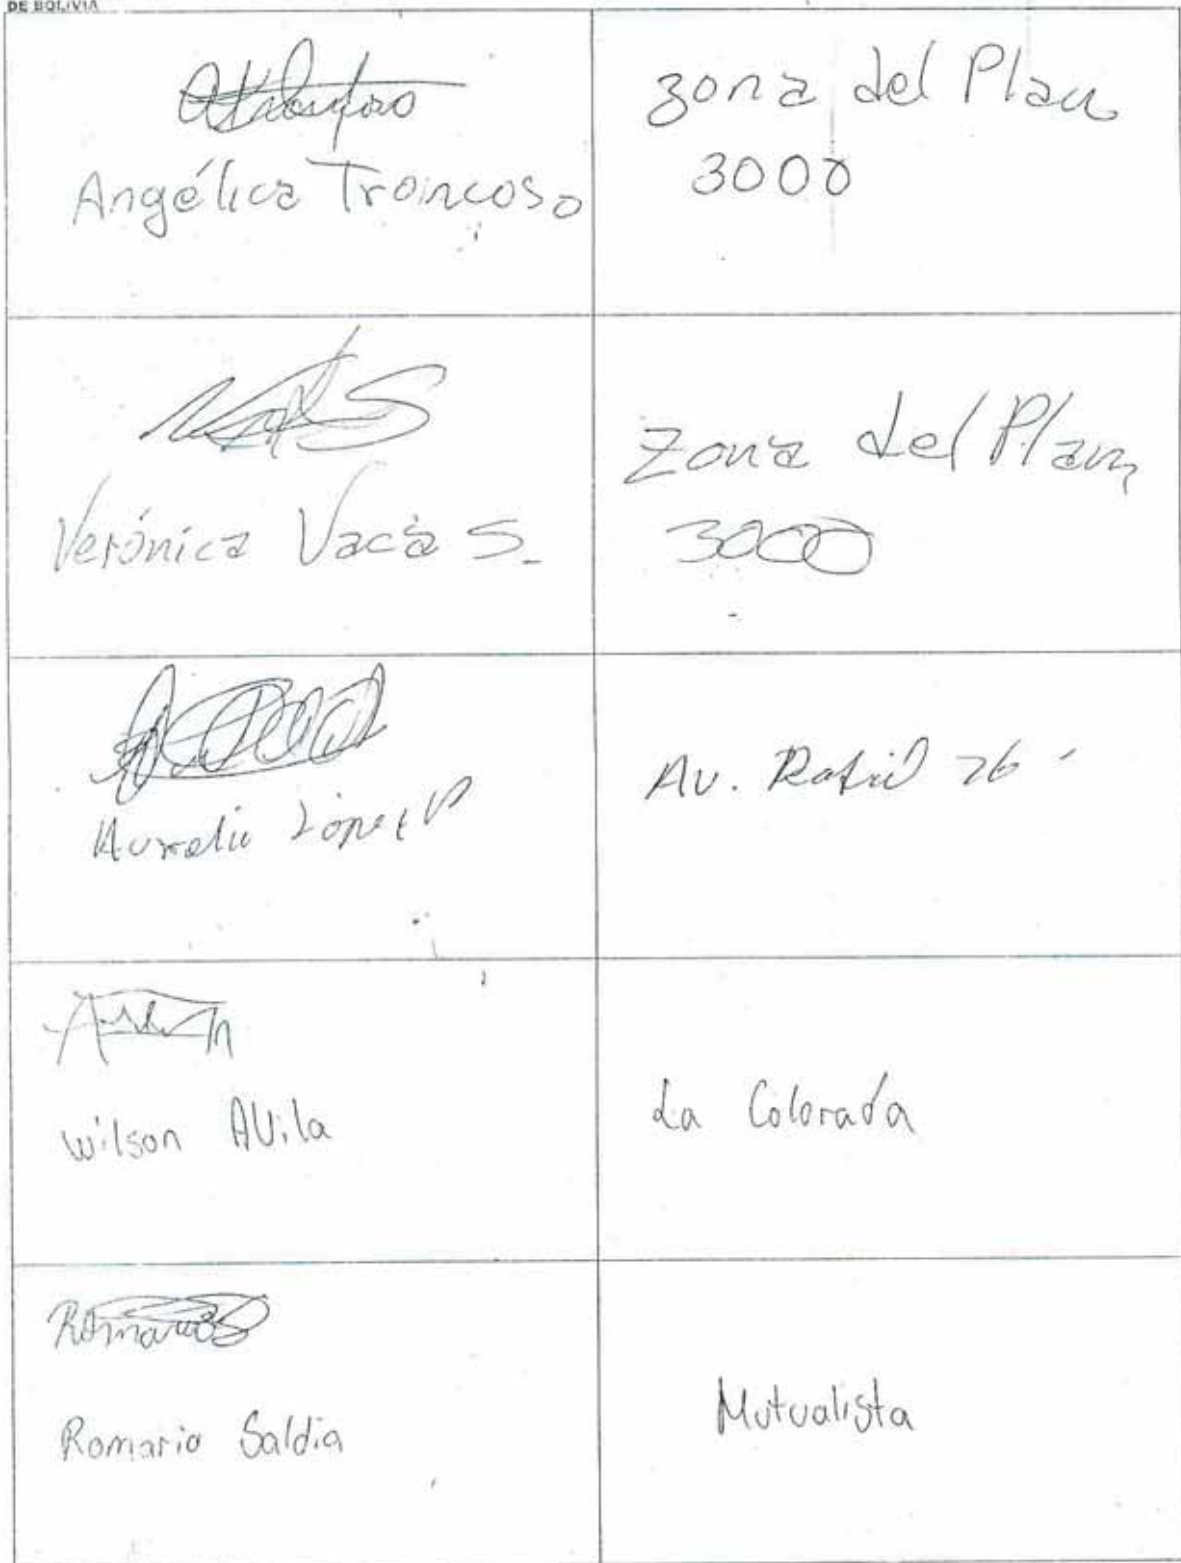 DE BOLIVIA
Angélica Troncoso
zona del Plan
3000
Verónica Vaca S.
Zona del Plan
3000
López
Av. 26
Wilson AVila
La Colorada
Romario
Romario Saldia
Mutualista